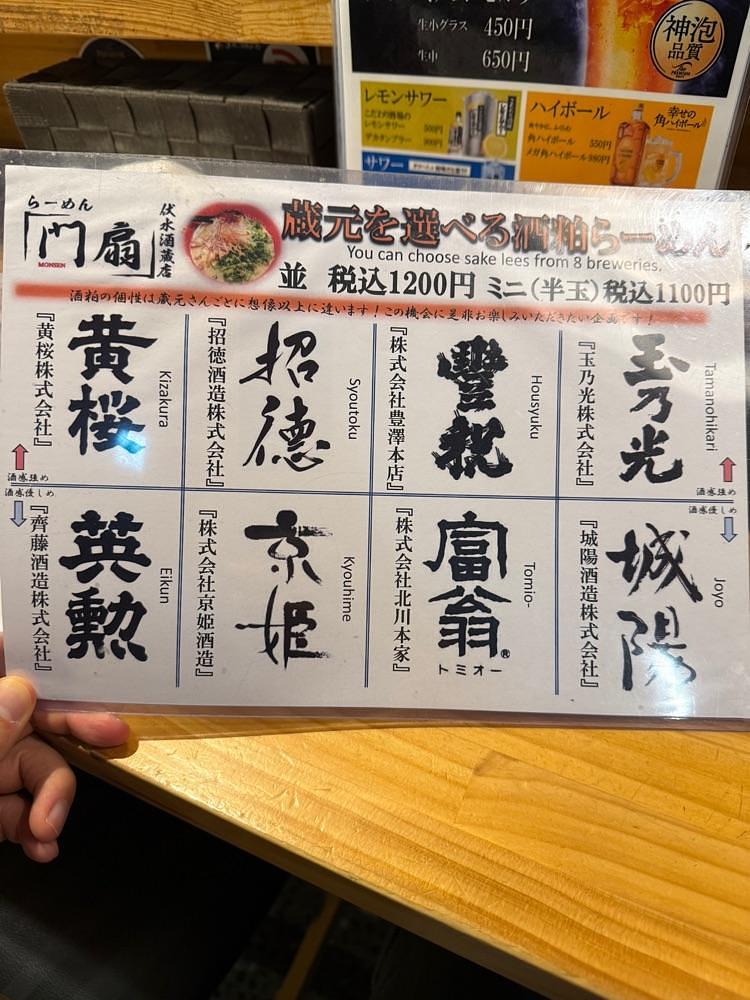 生小グラス 450円
生中 650円
神泡
品質
レモンサワー
こだわり酒場の
レモンサワー 500円
メガカンタンブラー 900円
ハイボール
角ハイボール 550円
メガ角ハイボール 980円
幸せの
角ハイボール
サワー
らーめん
「門扇」
MONSEN
伏水酒蔵店
蔵元を選べる酒粕らーめん
You can choose sake lees from 8 breweries.
並 税込1200円 ミニ(半玉)税込1100円
酒粕の個性は蔵元さんごとに想像以上に違います!この機会に是非お楽しみいただきたい企画です!
Tamanohikari
玉乃光
『玉乃光株式会社』
Housyuku
豐祝
『株式会社豊澤本店』
Syoutoku
招德
『招徳酒造株式会社』
Kizakura
黄桜
『黄桜株式会社』
酒感強め
酒感強め
酒感優しめ
酒感優しめ
Joyo
城陽
『城陽酒造株式会社』
Tomio-
富翁®
トミオー
『株式会社北川本家』
Kyouhime
京姫
『株式会社京姫酒造』
Eikun
英勲
『齊藤酒造株式会社』